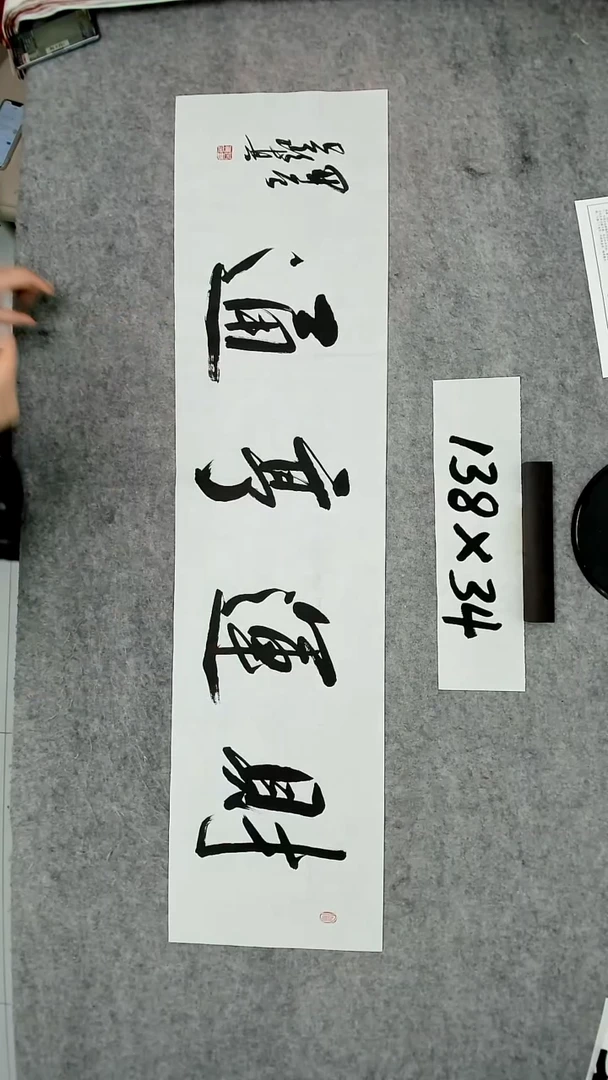 財運亨通
138×34